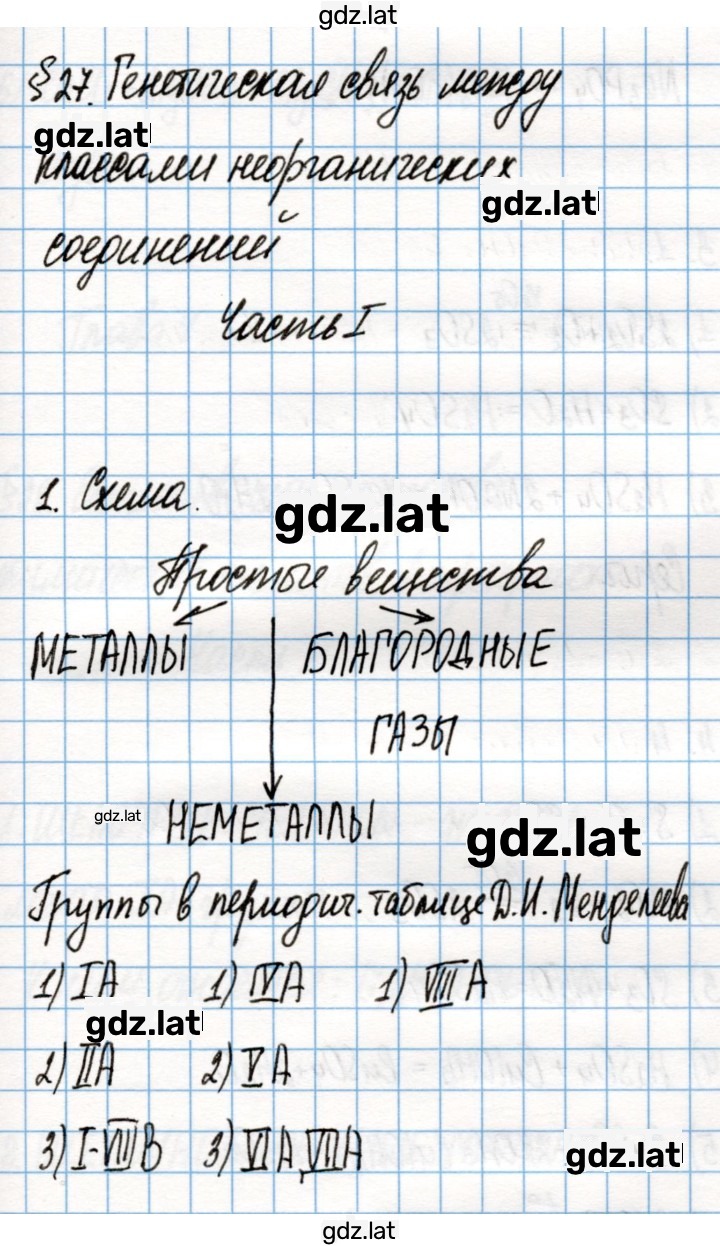 gdz.lat
§ 27. Генетическая связь между
gdz.lat
классами неорганических
gdz.lat
соединений
Часть I
1. Схема.
gdz.lat
Простые вещества
МЕТАЛЛЫ БЛАГОРОДНЫЕ
ГАЗЫ
gdz.lat
НЕМЕТАЛЛЫ
gdz.lat
Группы в периодич. таблице Д.И. Менделеева
1) IA 1) IVA 1) VIII A
gdz.lat
2) IIA 2) V A
3) I-VIII B 3) VI A, VII A
gdz.lat
gdz.lat